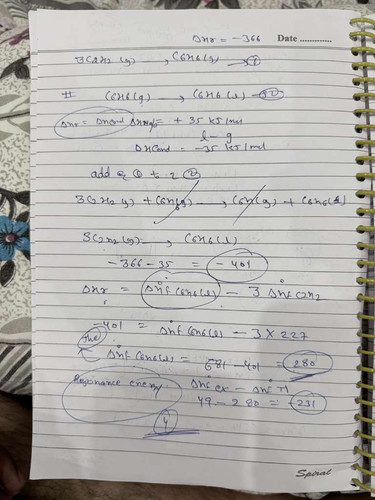 Δnr = -366 Date ............
3C2H2(g) → C6H6(g) -①
# C6H6(g) → C6H6(l) -②
Δnr = Δncond ΔHvap = + 35 KJ/mol
l - g
ΔHcond = -35 KJ/mol
add eq ① & 2 ②
3C2H2(g) + C6H6(g) → C6H6(g) + C6H6(l)
3C2H2(g) → C6H6(l)
-366 - 35 = -401
ΔHr = ΔHf° C6H6(l) - 3 ΔHf° C2H2
-401 = ΔHf° C6H6(l) - 3 × 227
The
ΔHf° C6H6(l) = 681 - 401 = 280
Resonance energy ΔHf° ex - ΔHf° Th
49 - 280 = -231
Spiral